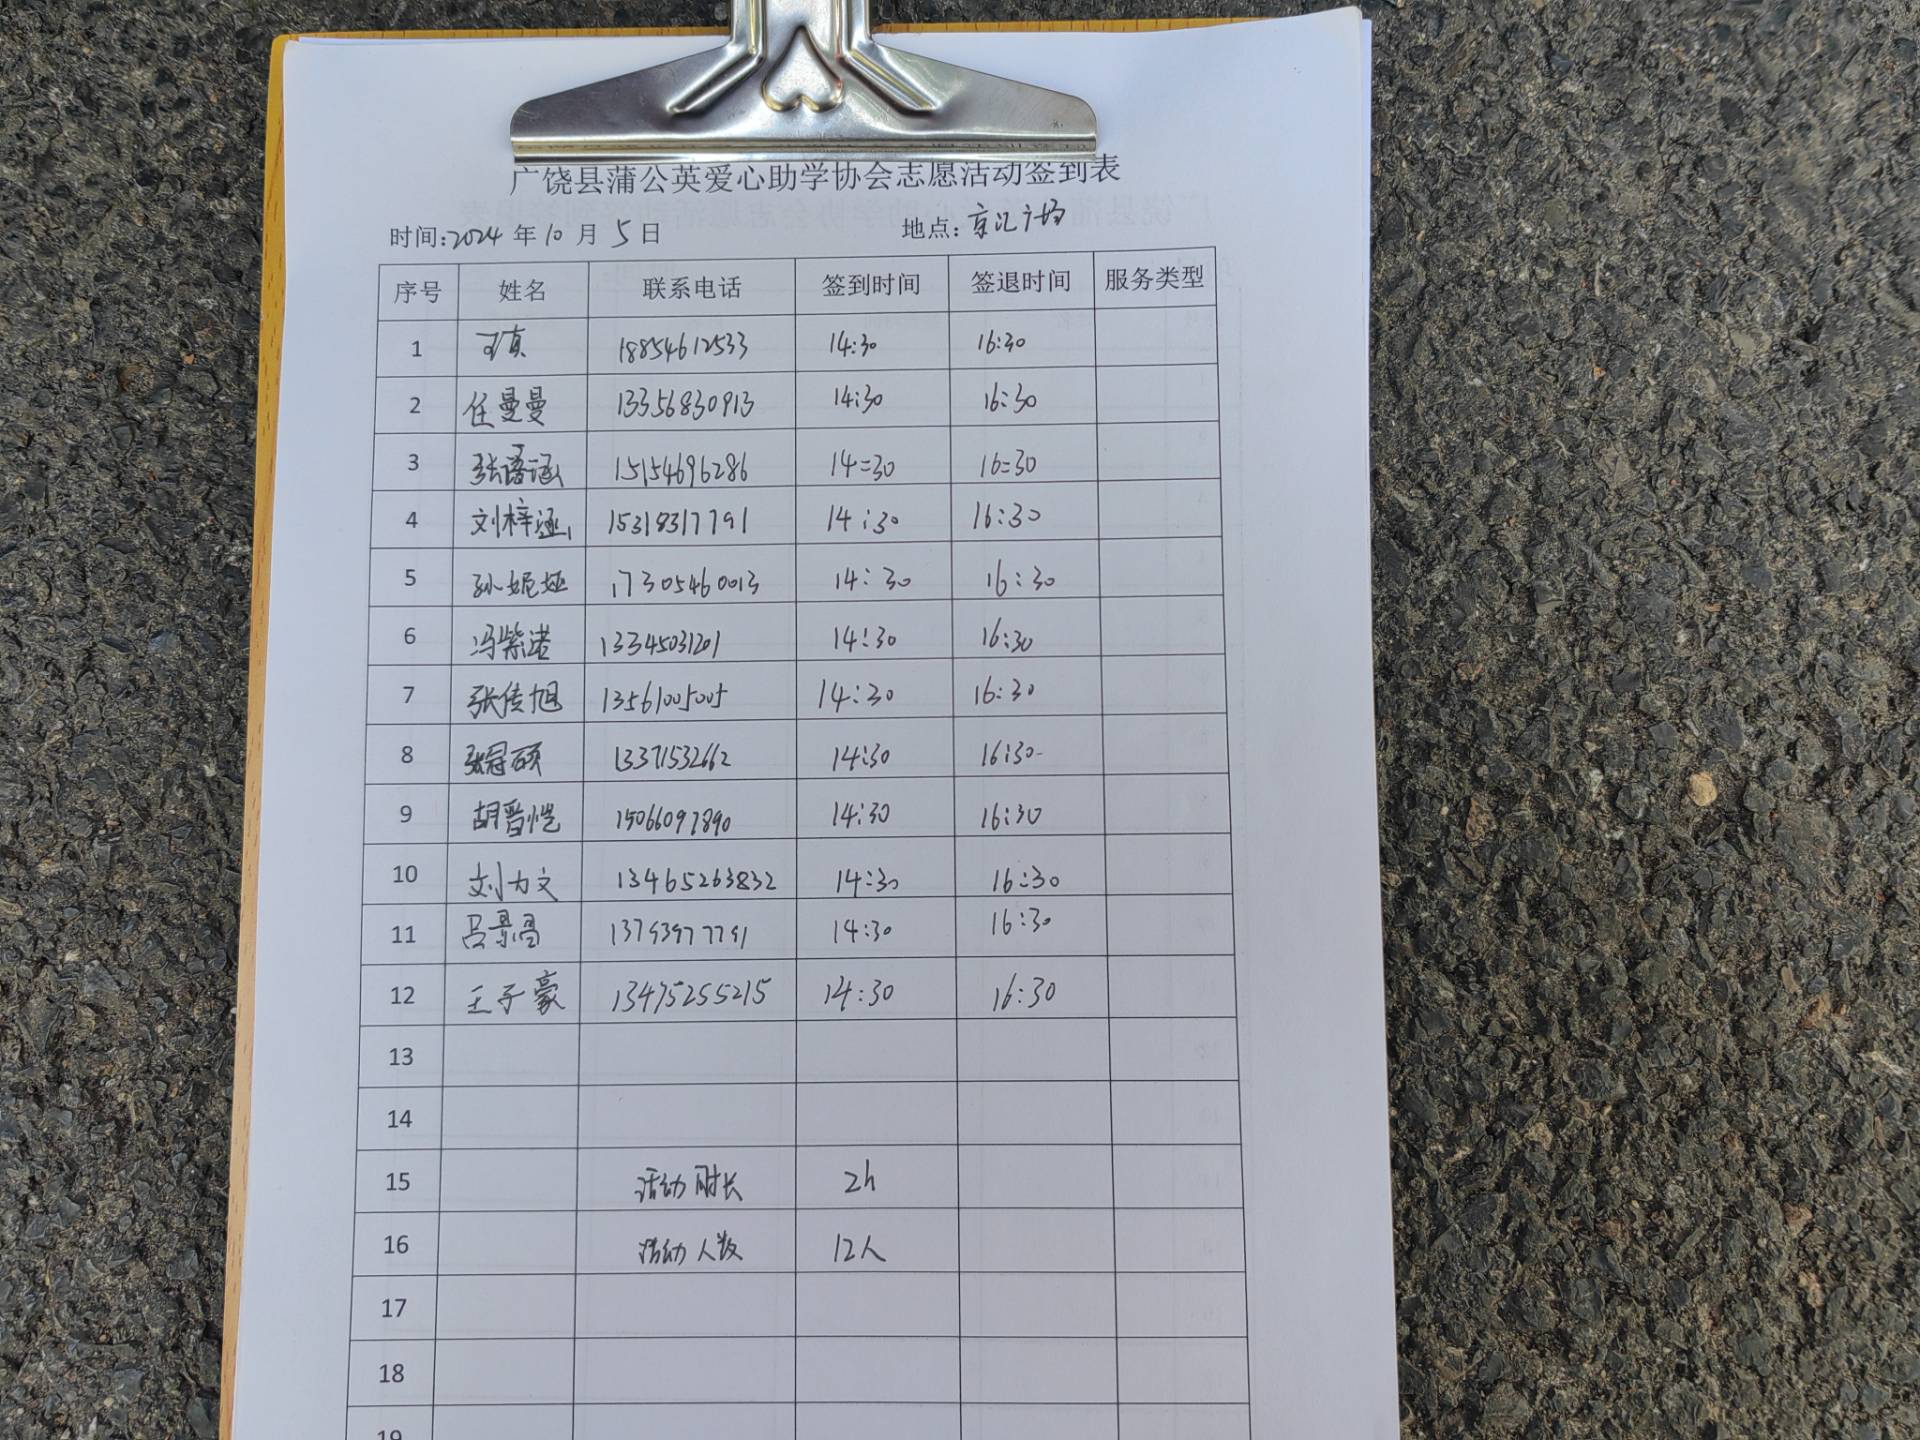 广饶县蒲公英爱心助学协会志愿活动签到表
时间:2024 年 10 月 5 日 地点:京汇广场
序号 姓名 联系电话 签到时间 签退时间 服务类型
1 18854612533 14:30 16:30
2 任曼曼 13356830913 14:30 16:30
3 张语涵 15154696286 14:30 16:30
4 刘梓涵 15318317791 14:30 16:30
5 孙妮娅 17305460013 14:30 16:30
6 冯紫诺 13345031201 14:30 16:30
7 张传旭 13561005005 14:30 16:30
8 张冠硕 13371532662 14:30 16:30
9 胡晋恺 15066097890 14:30 16:30
10 刘力文 13465263832 14:30 16:30
11 吕景 13793977791 14:30 16:30
12 王子豪 13475255215 14:30 16:30
13
14
15 活动时长 2h
16 活动人数 12人
17
18
19